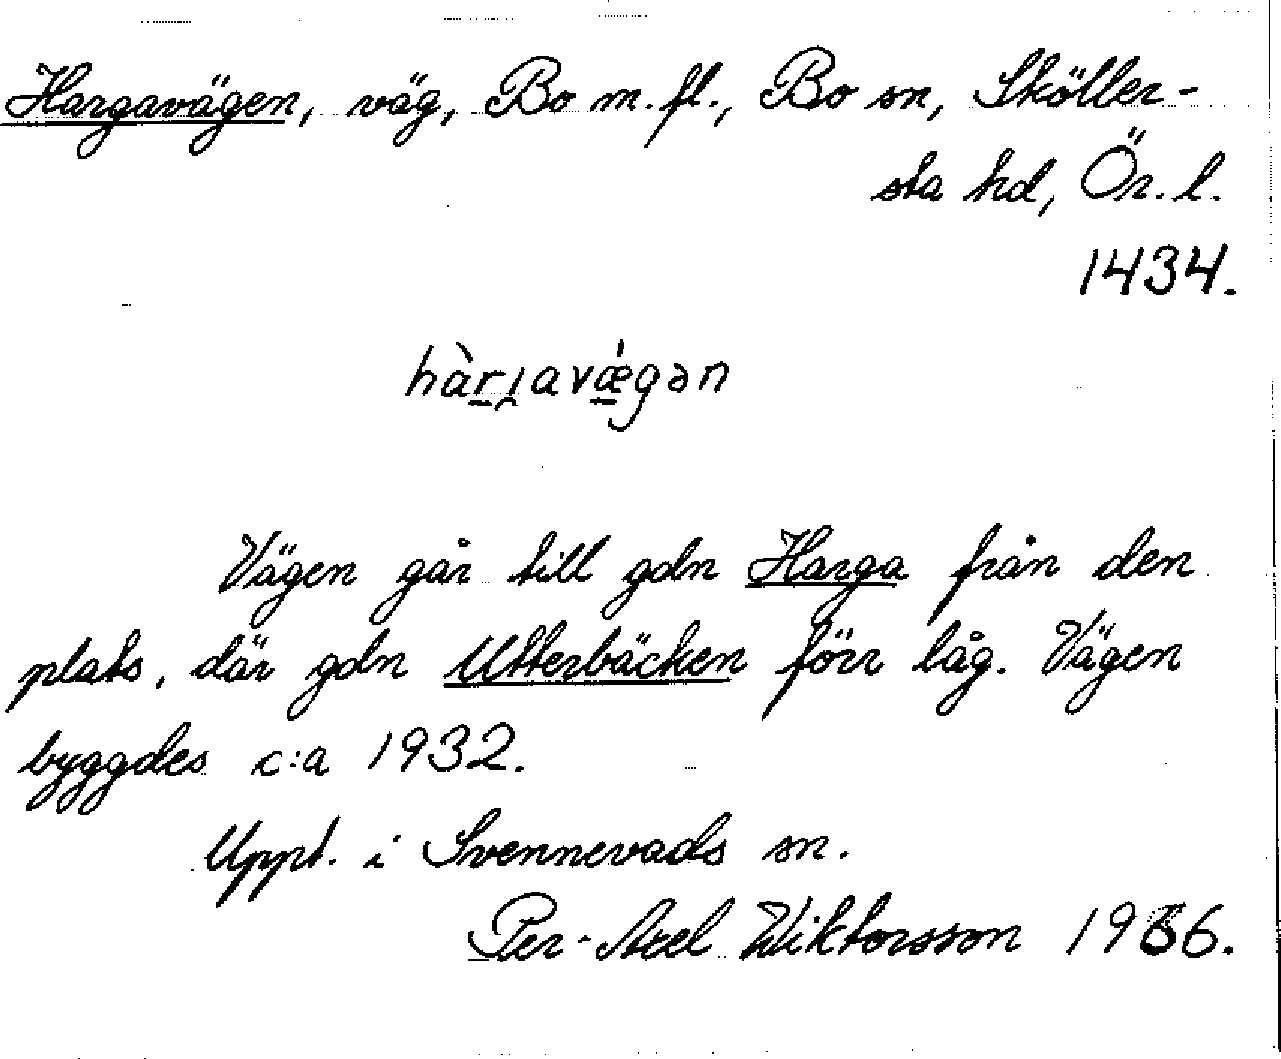 Hargavägen, väg, Bo m. fl., Bo sn, Sköller-
sta hd, Ör. l.
1434.
Vägen går till gdn Harga från den
plats, där gdn Utterbäcken förr låg. Vägen
byggdes c:a 1932.
Uppt. i Svennevads sn.
Per-Axel Wiktorsson 1966.